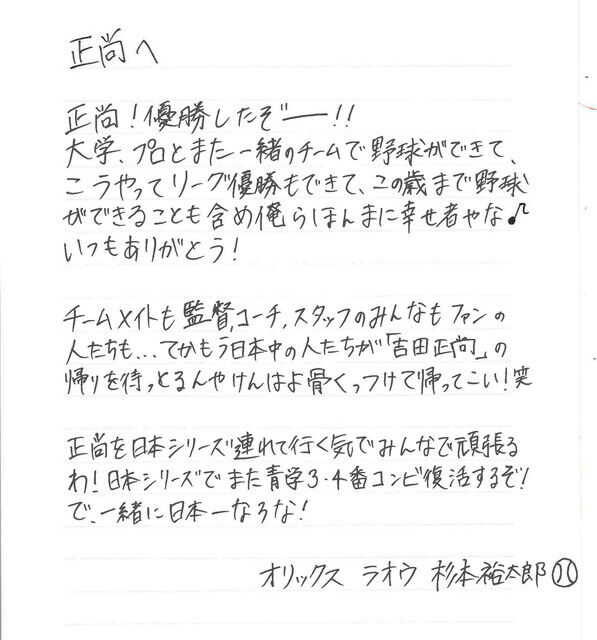 正尚へ
正尚！優勝したぞー！！
大学、プロとまた一緒のチームで野球ができて、
こうやってリーグ優勝もできて、この歳まで野球
ができることも含め俺らほんまに幸せ者やな♪
いつもありがとう！
チームメイトも監督、コーチ、スタッフのみんなもファンの
人たちも...てかもう日本中の人たちが「吉田正尚」の
帰りを待っとるんやけんはよ骨くっつけて帰ってこい！笑
正尚を日本シリーズ連れて行く気でみんなで頑張る
わ！日本シリーズでまた青学3・4番コンビ復活するぞ！
で、一緒に日本一なろな！
オリックス ラオウ 杉本裕太郎